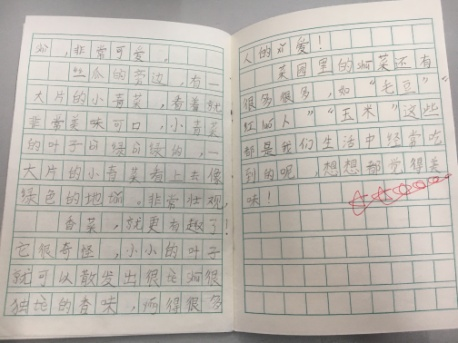 ，非常可爱。
瓜的旁边，有一
大片的小青菜，看着就
非常美味可口，小青菜
的叶子绿绿的，一
大片的小青菜看上去像
绿色的地毯，非常壮观
香菜，就更有趣了！
它很奇怪，小小的叶子
就可以散发出很
独特的香味，得很多
人的爱！
菜园里的菜还有
很多很多，如“毛豆”
“玉米”这些
都是我们生活中经常吃
到的呢，想想都觉得美
味！